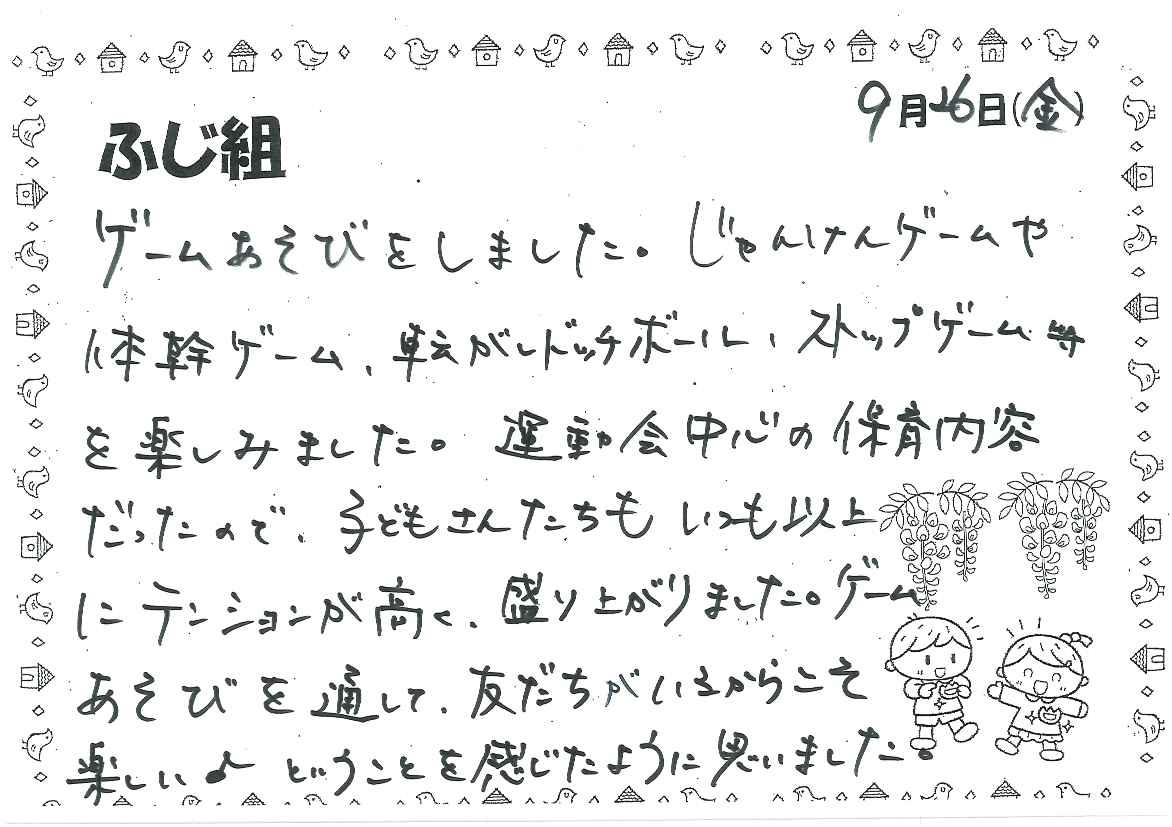 9月26日(金)
ふじ組
ゲームあそびをしました。じゃんけんゲームや
体幹ゲーム、転がしドッヂボール、ストップゲーム等
を楽しみました。運動会中心の保育内容
だったので、子どもさんたちもいつも以上
にテンションが高く、盛り上がりました。ゲーム
あそびを通して、友だちがいるからこそ
楽しい♪ということを感じたように思いました。